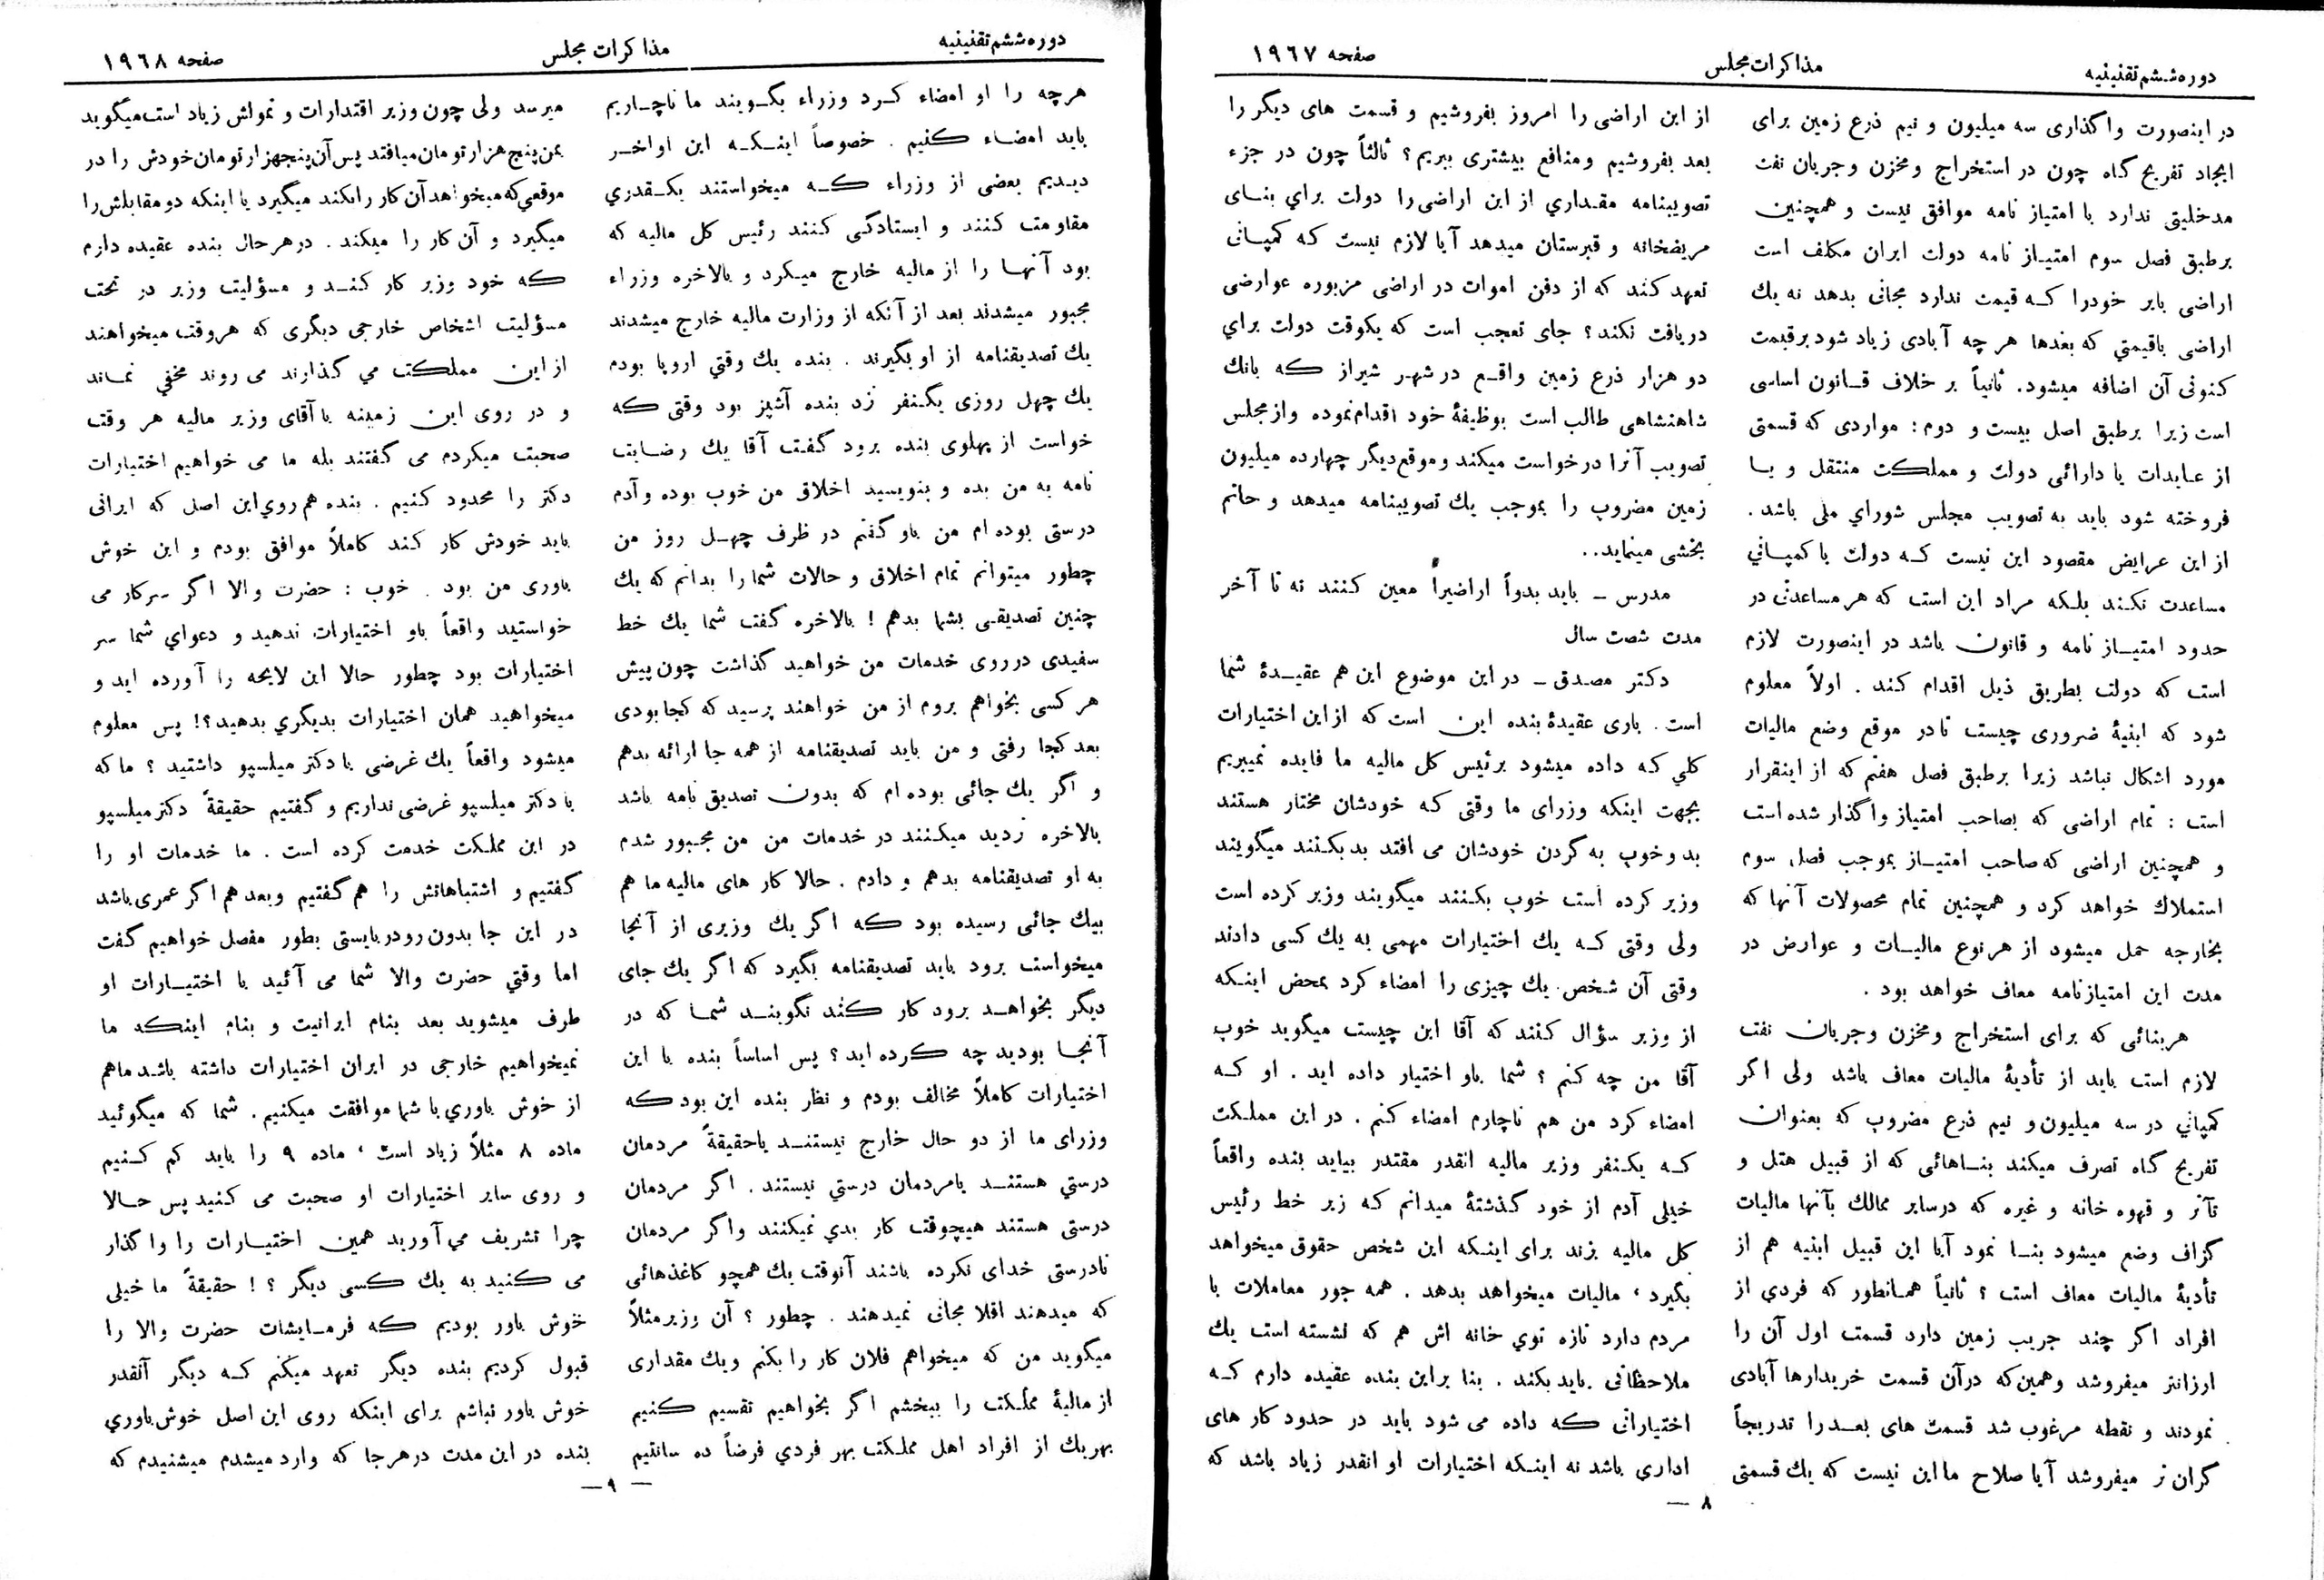 دوره ششم تقنینیه
مذاکرات مجلس
صفحه ۱۹۶۷
در اینصورت واگذاری سه میلیون و نیم ذرع زمین برای
ایجاد تفریح گاه چون در استخراج و مخزن و جریان نفت
مدخلیتی ندارد با امتیاز نامه موافق نیست و همچنین
برطبق فصل سوم امتیـاز نامه دولت ایران مکلف است
اراضی بایر خودرا کـه قیمت ندارد مجانی بدهد نه یك
اراضی باقیمتي که بعدها هر چه آبادی زیاد شود برقیمت
کنونی آن اضافه میشود. ثانیاً بر خلاف قـانون اساسی
است زیرا برطبق اصل بیست و دوم: مواردی که قسمتی
از عـایدات یا دارائی دولت و مملکت منتقل و یـا
فروخته شود باید به تصویب مجلس شورای ملی باشد.
از این عرایض مقصود این نیست کـه دولت با کمپـانی
مساعدت نکـند بلـکه مراد این است که هر مساعدتی در
حدود امتیـاز نامه و قانون باشد در اینصورت لازم
است که دولت بطریق ذیل اقدام کـند. اولاً معلوم
شود که ابنیهٔ ضروری چیست تا در موقع وضع مالیات
مورد اشکال نباشد زیرا برطبق فصل هفتم که از اینقرار
است: تمام اراضی که بصاحب امتیاز واگذار شده است
و همچنین اراضی که صاحب امتیـاز بموجب فصل سوم
استملاك خواهد کرد و همچنین تمام محصولات آنها که
بخارجه حمل میشود از هر نوع مالیـات و عوارض در
مدت این امتیازنامه معاف خواهد بود.
هر بنائی که برای استخراج و مخزن و جریان نفت
لازم است باید از تأدیهٔ مالیات معاف باشد ولی اگر
کمپانی در سه میلیون و نیم ذرع مضروب که بعنوان
تفریح گاه تصرف میکند بنـاهائی که از قبیل هتل و
تآتر و قهوه خانه و غیره که در سایر ممالك بآنها مالیات
گزاف وضع میشود بنـا نمود آیا این قبیل ابنیه هم از
تأدیهٔ مالیات معاف است؟ ثانیاً همـانطور که فردي از
افراد اگر چند جریب زمین دارد قسمت اول آن را
ارزانتر میفروشد و همین که در آن قسمت خریدارها آبادی
نمودند و نقطه مرغوب شد قسمت های بعـد را تدریجاً
گران تر میفروشد آیا صلاح ما این نیست که یك قسمتی
از این اراضی را امروز بفروشیم و قسمت های دیگر را
بعد بفروشیم و منافع بیشتری ببریم؟ ثالثاً چون در جزء
تصویبنامه مقـداري از این اراضی را دولت برای بنـای
مریضخانه و قبرستان میدهد آیا لازم نیست که کمپانی
تعهد کند که از دفن اموات در اراضی مزبوره عوارضی
دریافت نکند؟ جای تعجب است که یکوقت دولت برای
دو هزار ذرع زمین واقـع در شهـر شیراز کـه بانك
شاهنشاهی طالب است بوظیفهٔ خود اقدام نموده و از مجلس
تصویب آنرا درخواست میکند و موقع دیگر چهارده میلیون
زمین مضروب را بموجب یك تصویبنامه میدهد و حاتم
بخشی مینماید..
مدرس ـ باید بدواً اراضیراً معین کـنند نه تا آخر
مدت شصت سال
دکتر مصدق ـ در این موضوع این هم عقیـدهٔ شما
است. باری عقیدهٔ بنده این است که از این اختیارات
کلي کـه داده میشود برئیس کل مالیه ما فایده نمیبریم
بجهت اینکه وزرای ما وقتی کـه خودشان مختار هستند
بد و خوب به گردن خودشان می افتد بد بکـنند میگویند
وزیر کرده است خوب بکـنند میگویند وزیر کرده است
ولی وقتی کـه یك اختیارات مهمی به یك کسی دادند
وقتی آن شخص یك چیزی را امضاء کرد بمحض اینـکه
از وزیر سؤال کـنند که آقا این چیست میگوید خوب
آقا من چه کنم؟ شما باو اختیار داده اید. او کـه
امضاء کرد من هم ناچارم امضاء کنم. در این مملـکت
کـه یکـنفر وزیر مالیه انقدر مقتدر بیاید بنده واقعاً
خیلی آدم از خود گذشتهٔ میدانم کـه زیر خط رئیس
کل مالیه بزند برای اینـکه این شخص حقوق میخواهد
بگیرد، مالیات میخواهد بدهد. همه جور معاملات با
مردم دارد تازه توي خانه اش هم که نشسته است یك
ملاحظاتی باید بکند. بنا براین بنده عقیده دارم کـه
اختیاراتی کـه داده می شود باید در حدود کار های
اداري باشد نه اینـکه اختیارات او انقدر زیاد باشد که
ـ ۸
دوره ششم تقنینیه
مذاکرات مجلس
صفحه ۱۹۶۸
هرچه را او امضاء کـرد وزراء بگـویند ما ناچـاریم
باید امضـاء کـنیم. خصوصاً اینـکـه این اواخـر
دیـدیم بعضی از وزراء کـه میخواستند یکـقدري
مقاومت کنند و ایستادگی کـنند رئیس کل مالیه که
بود آنهـا را از مالیه خارج میـکرد و بالاخره وزراء
مجبور میشدند بعد از آنکه از وزارت مالیه خارج میشدند
یك تصدیقنامه از او بگیرند. بنده یك وقتي اروپا بودم
یك چهل روزی یکـنفر نزد بنده آشپز بود وقتی کـه
خواست از پهلوی بنده برود گفـت آقا یك رضـایت
نامه به من بده و بنویسید اخلاق من خوب بوده و آدم
درستی بوده ام من باو گفتم در ظرف چهـل روز من
چطور میتوانم تمام اخلاق و حالات شما را بدانم که یك
چنین تصدیقـی بشما بدهم! بالاخره گفت شما یك خط
سفیدی در روی خدمات من خواهید گذاشت چون پیش
هر کسی بخواهم بروم از من خواهند پرسید که کجا بودی
بعد کجا رفتی و من باید تصدیقنامه از همه جا ارائه بدهم
و اگر یك جائی بوده ام که بدون تصدیق نامه باشد
بالاخره تردید میکـنند در خدمات من من مجـبور شدم
به او تصدیقنامه بدهم و دادم. حالا کار های مالیه ما هم
بیك جائی رسیده بود کـه اگر یك وزیری از آنجا
میخواست برود باید تصدیقنامه بگیرد که اگر یك جای
دیگر بخواهـد برود کار کند نگویـنـد شمـا که در
آنجـا بودید چه کـرده اید؟ پس اساساً بنده با این
اختیارات کاملاً مخالف بودم و نظر بنده این بود کـه
وزرای ما از دو حال خارج نیستنـد یا حقیقةً مردمان
درستي هستنـد یا مردمان درستي نیستند. اگر مردمان
درستی هستند هیچوقت کار بدي نمیکنند و اگر مردمان
نادرستی خدای نکرده باشند آنوقت یك همچو کاغذهائی
که میدهند اقلا مجانی نمیدهند. چطور؟ آن وزیر مثلاً
میگوید من که میخواهم فلان کار را بکنم و یك مقداری
از مالیهٔ مملـکت را ببخشم اگر بخواهیم تقسیم کـنیم
بهر یك از افراد اهل مملـکت بهر فردي فرضاً ده سانتیم
میرسد ولی چون وزیر اقتدارات و تمولش زیاد است میگوید
بمن پنج هزار تومان میافتد پس آن پنجهزار تومان خودش را در
موقعي که میخواهد آن کار را بکند میگیرد یا اینکه دو مقابلش را
میگیرد و آن کار را میکند. در هر حال بنده عقیده دارم
کـه خود وزیر کار کنـد و مسؤلیت وزیر در تحت
مسؤلیت اشخاص خارجی دیگری که هر وقت میخواهند
از این مملـکت مي گذارند می روند مخفي نمـاند
و در روی این زمینه با آقای وزیر مالیه هر وقت
صحبت میکردم می گفتند بله ما می خواهیم اختیارات
دکتر را محدود کنیم. بنده هم روي این اصل که ایرانی
باید خودش کار کند کاملاً موافق بودم و این خوش
باوری من بود. خوب: حضرت والا اگر سرکار می
خواستید واقعاً باو اختیارات ندهید و دعوای شما سر
اختیارات بود چطور حالا این لایحه را آورده اید و
میخواهید همان اختیارات بدیگري بدهید؟! پس معلوم
میشود واقعاً یك غرضی با دکتر میلسپو داشتید؟ ما که
با دکتر میلسپو غرضی نداریم و گفتیم حقیقةً دکتر میلسپو
در این مملـکت خدمت کرده است. ما خدمات او را
گفتیم و اشتباهاتش را هم گفتیم و بعد هم اگر عمری باشد
در این جا بدون رودربایستی بطور مفصل خواهیم گفت
اما وقتي حضرت والا شما می آئید با اختیـارات او
طرف میشوید بعد بنام ایرانیت و بنام اینـکه ما
نمیخواهیم خارجی در ایران اختیارات داشته باشد ما هم
از خوش باوري با شما موافقت میکنیم. شما که میگوئید
ماده ۸ مثلاً زیاد است، ماده ۹ را باید کم کـنیم
و روی سایر اختیارات او صحبت می کـنید پس حـالا
چرا تشریف مي آورید همین اختیـارات را واگذار
می کـنید به یك کـسی دیگر؟! حقیقةً ما خیلی
خوش باور بودیم کـه فرمـایشات حضرت والا را
قبول کردیم بنده دیگر تعهد میکنم کـه دیگر آنقدر
خوش باور نباشم برای اینکه روی این اصل خوش باوري
بنده در این مدت در هر جا که وارد میشدم میشنیدم که
ـ ۹ ـ